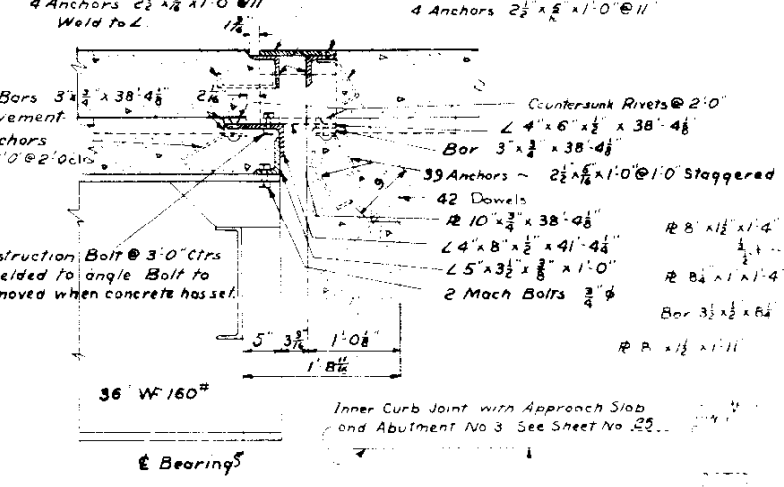 4 Anchors 2½ x 5/16 x 1'-0" @ 11
Weld to ∠.
4 Anchors 2½" x 5/16" x 1'-0" @ 11"
Bars 3" x ¾" x 38'-4⅛"
2 1/16"
vement
chors
'0" @ 2'0 ctrs
Countersunk Rivets @ 2'-0"
∠ 4" x 6" x ½" x 38'-4⅛"
Bar 3" x ¾" x 38'-4⅛"
39 Anchors ~ 2½" x 5/16" x 1'-0" @ 1'0" Staggered
42 Dowels
PL 10" x ¾" x 38'-4⅛"
∠ 4" x 8" x ½" x 41'-4¼"
∠ 5" x 3½" x ⅜" x 1'-0"
2 Mach Bolts ¾" φ
PL 8" x 1½" x 1'-4"
PL 8¼ x 1" x 1'-4"
Bar 3½ x ½ x 8¼
PL 8 x 1½ x 1'-11"
struction Bolt @ 3'-0" Ctrs
elded to angle Bolt to
moved when concrete has set.
5" 3 9/16" 1'-0⅛"
1'-8 11/16"
36" WF 160#
Inner Curb Joint with Approach Slab
and Abutment No 3 See Sheet No 25
℄ Bearings